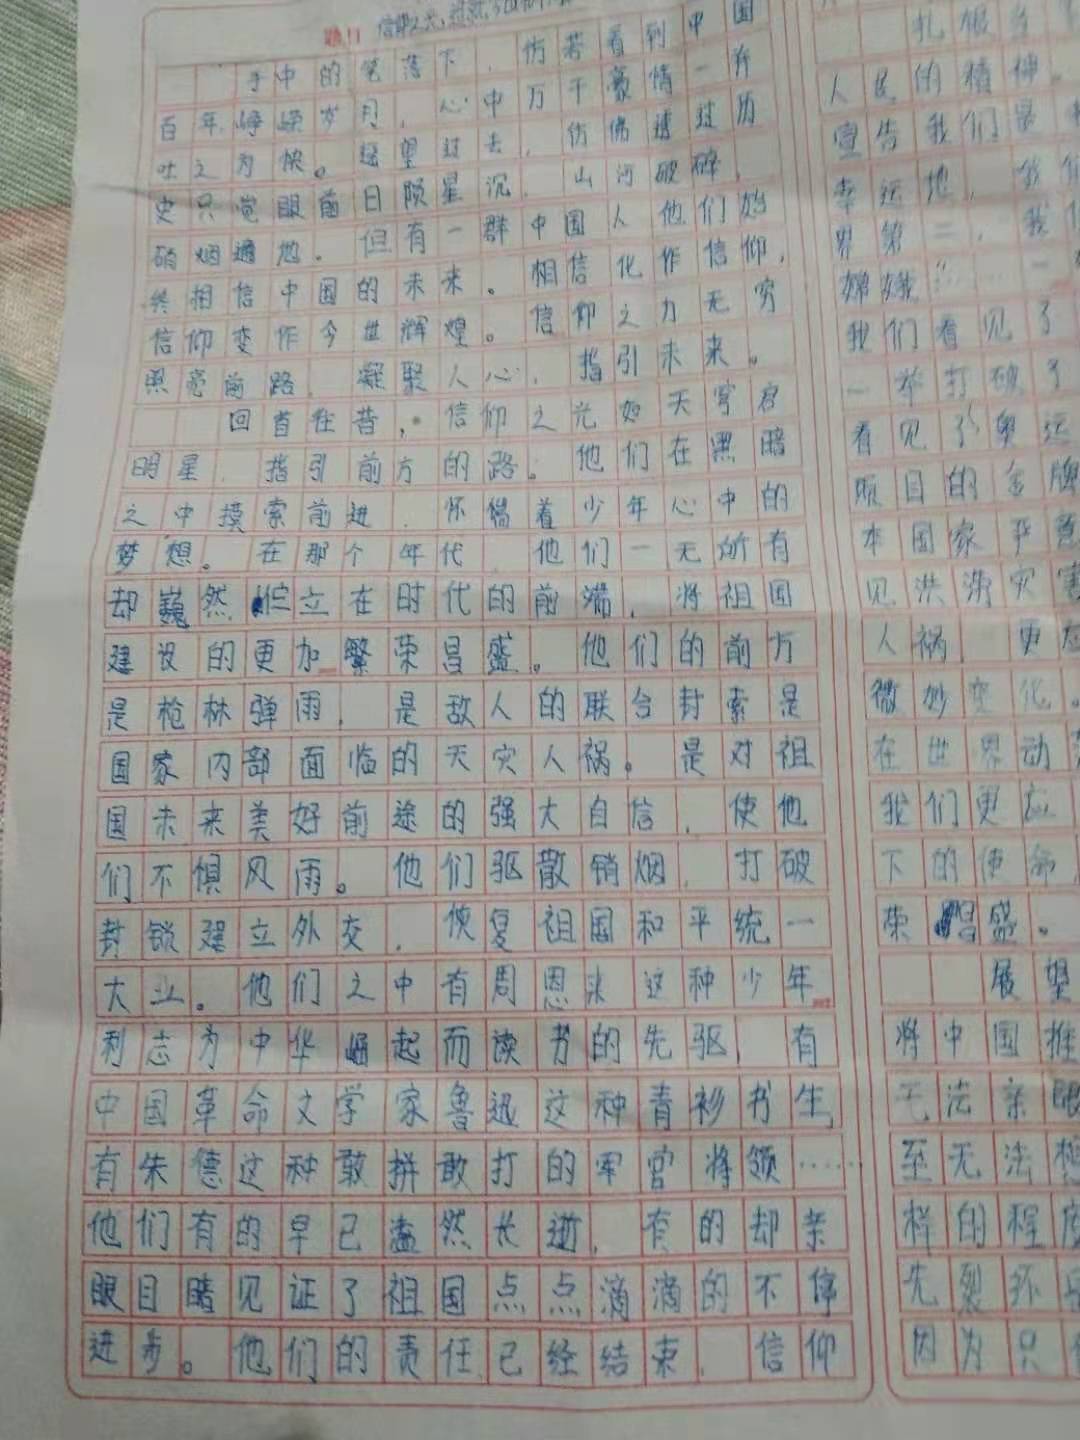 题目 信仰之光,
手中的笔落下,仿若看到中国
百年峥嵘岁月,心中万千豪情一并
吐之为快。遥望过去,仿佛透过历
史只觉眼前日陨星沉,山河破碎,
硝烟遍地。但有一群中国人他们始
终相信中国的未来。相信化作信仰,
信仰变作今世辉煌。信仰之力无穷
照亮前路,凝聚人心,指引未来。
回首往昔,信仰之光如天穹启
明星,指引前方的路。他们在黑暗
之中摸索前进,怀揣着少年心中的
梦想。在那个年代,他们一无所有
却巍然伫立在时代的前端,将祖国
建设的更加繁荣昌盛。他们的前方
是枪林弹雨,是敌人的联合封索是
国家内部面临的天灾人祸。是对祖
国未来美好前途的强大自信,使他
们不惧风雨。他们驱散销烟,打破
封锁建立外交,恢复祖国和平统一
大业。他们之中有周恩来这种少年
利志为中华崛起而读书的先驱,有
中国革命文学家鲁迅这种青衫书生,
有朱德这种敢拼敢打的军官将领……
他们有的早已溘然长逝,有的却亲
眼目睹见证了祖国点点滴滴的不停
进步。他们的责任已经结束,信仰
扎根
人民的精神。
宣告我们是
幸运地,我们
界第二,我
嫦娥
我们看见了
一举打破了
看见了奥运
瞩目的金牌
本国家
见洪涝灾害
人祸,更
微妙变化。
在世界动
我们更应
下的使命,
荣昌盛。
展望
将中国推
无法亲眼
至无法想
样的程度
先烈
因为只